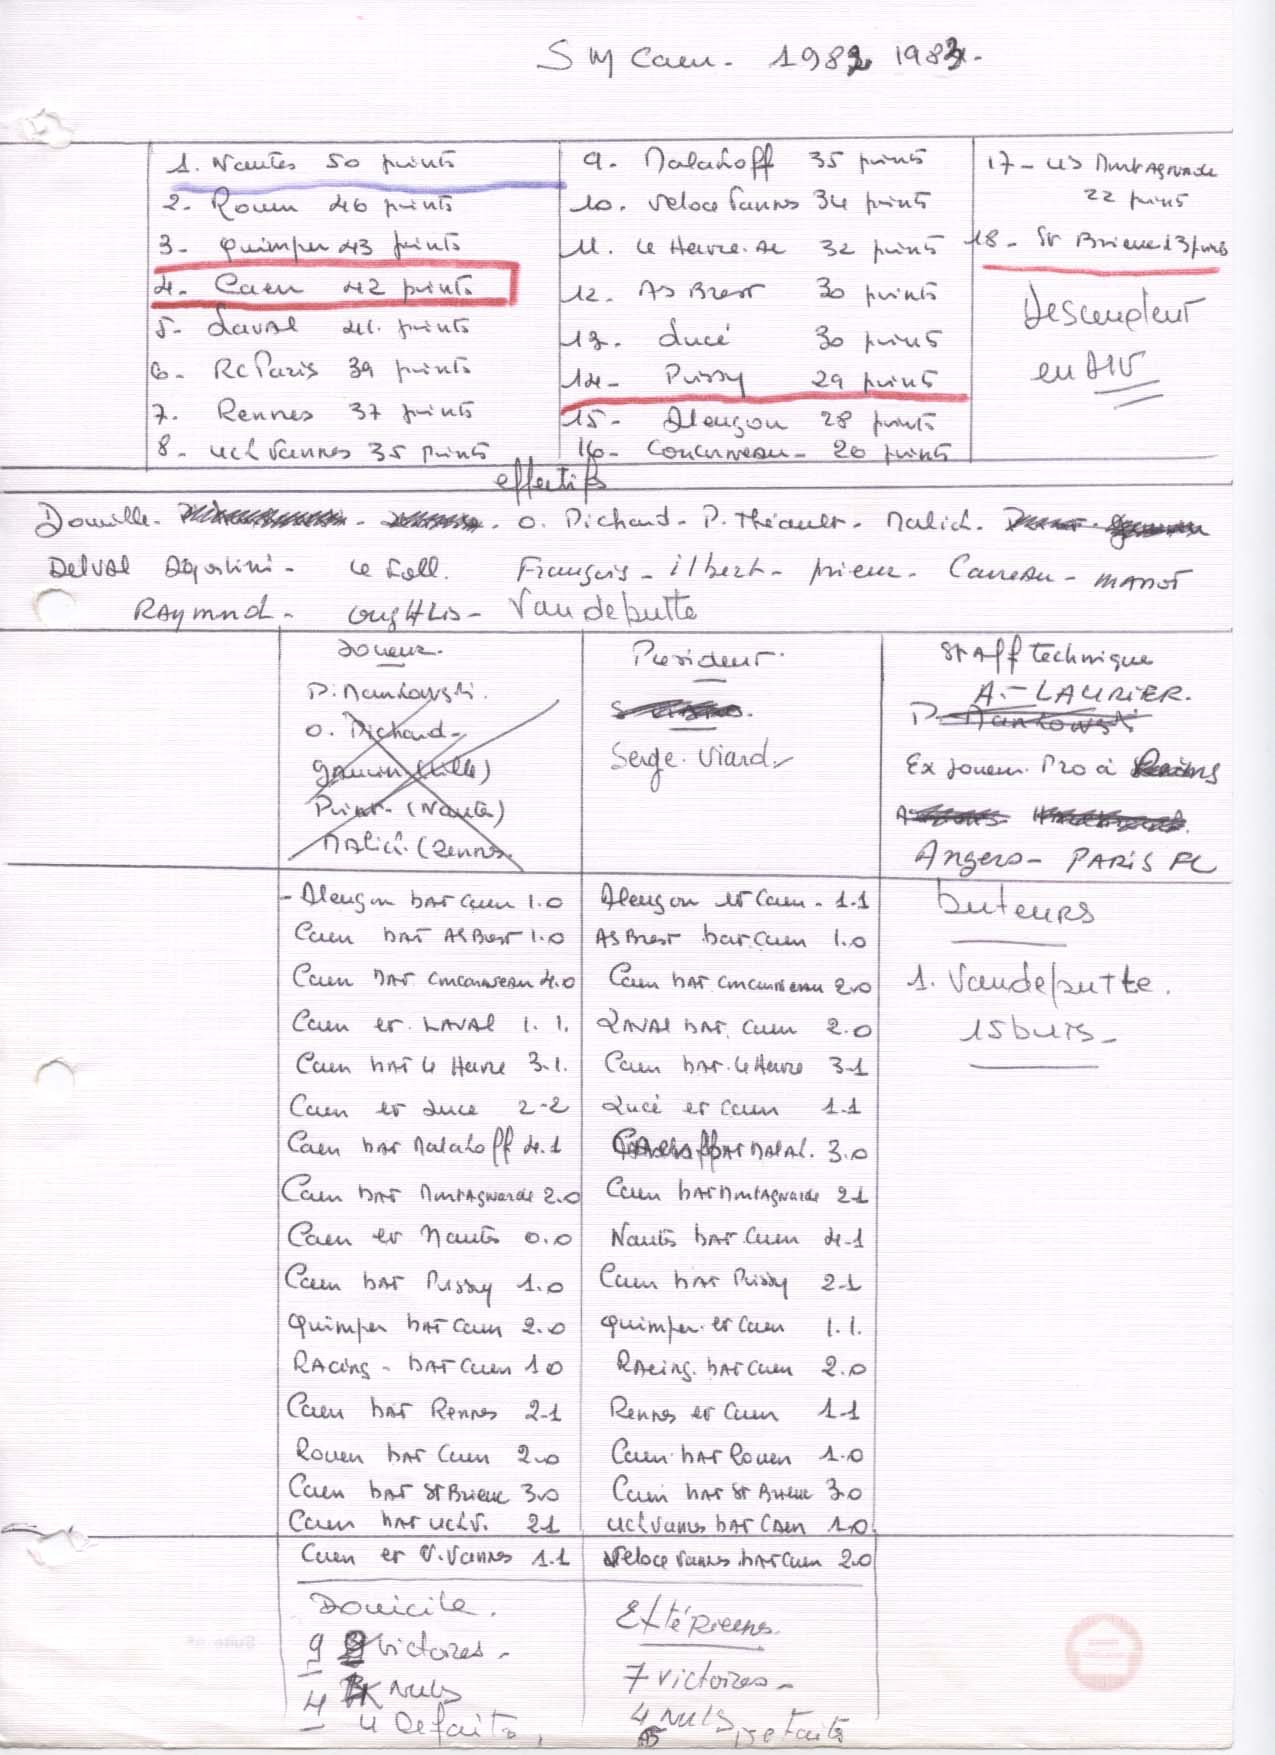 S M Caen - 1982 1983 -
1. Nantes 50 points
2. Rouen 46 points
3. Quimper 43 points
4. Caen 42 points
5. Laval 41. points
6. Rc Paris 39 points
7. Rennes 37 points
8. ucl Vannes 35 points
9. Malakoff 35 points
10. Veloce Vannes 34 points
11. Le Havre. Ac 32 points
12. AS Brest 30 points
13. Lucé 30 points
14. Poissy 29 points
15. Alençon 28 points
16. Concarneau - 20 points
17 - US Montagnarde
22 points
18 - St Brieuc 13 points
Descendent
en DIV
effectifs
Douville - O. Pichard - P. Théault - Malich.
Delval Agostini - Le Foll. François - ilbert - prieur - Carreau - MANOT
RAymond - OugHLis - Vandeputte
Joueur.
P. Mankowski.
O. Pichard -
(Lille)
(Nantes)
Malich. (Rennes.
Président.
Serge. Viard.
STAff technique
A. - LAURIER.
P. Mankowski
Ex joueur. Pro à
Angers - PARIS FC
- Alençon bAT Caen 1.0
Caen bAT AS Brest 1.0
Caen bAT Concarneau 4.0
Caen et. LAVAL 1. 1.
Caen bAT Le Havre 3.1.
Caen et Luce 2-2
Caen bAT Malakoff 4.1
Caen bAT MontAgnarde 2.0
Caen et Nantes 0.0
Caen bAT Poissy 1.0
Quimper bAT Caen 2.0
RAcing - bAT Caen 1 0
Caen bAT Rennes 2-1
Rouen bAT Caen 2.0
Caen bAT St Brieuc 3.0
Caen bAT uclV. 21
Caen et V. Vannes 1.1
Alençon et Caen - 1.1
AS Brest bat Caen 1.0
Caen bAT Concarneau 2.0
LAVAl bAT. Caen 2.0
Caen bAT. Le Havre 3-1
Lucé et Caen 1.1
bAT MALAk. 3.0
Caen bAT MontAgnarde 21
Nantes bAT. Caen 4-1
Caen bAT Poissy 2-1
Quimper. et Caen 1.1.
RAcing. bAT Caen 2.0
Rennes et Caen 1-1
Caen bAT Rouen 1.0
Caen bAT St Brieuc 3.0
ucl Vannes bAT CAen 1.0
Veloce Vannes bAT Caen 2.0
buteurs
1. Vandeputte.
15 buts -
Domicile.
9 victoires -
4 Nuls
4 Defaites,
Extérieurs.
7 victoires -
4 Nuls, Defaites